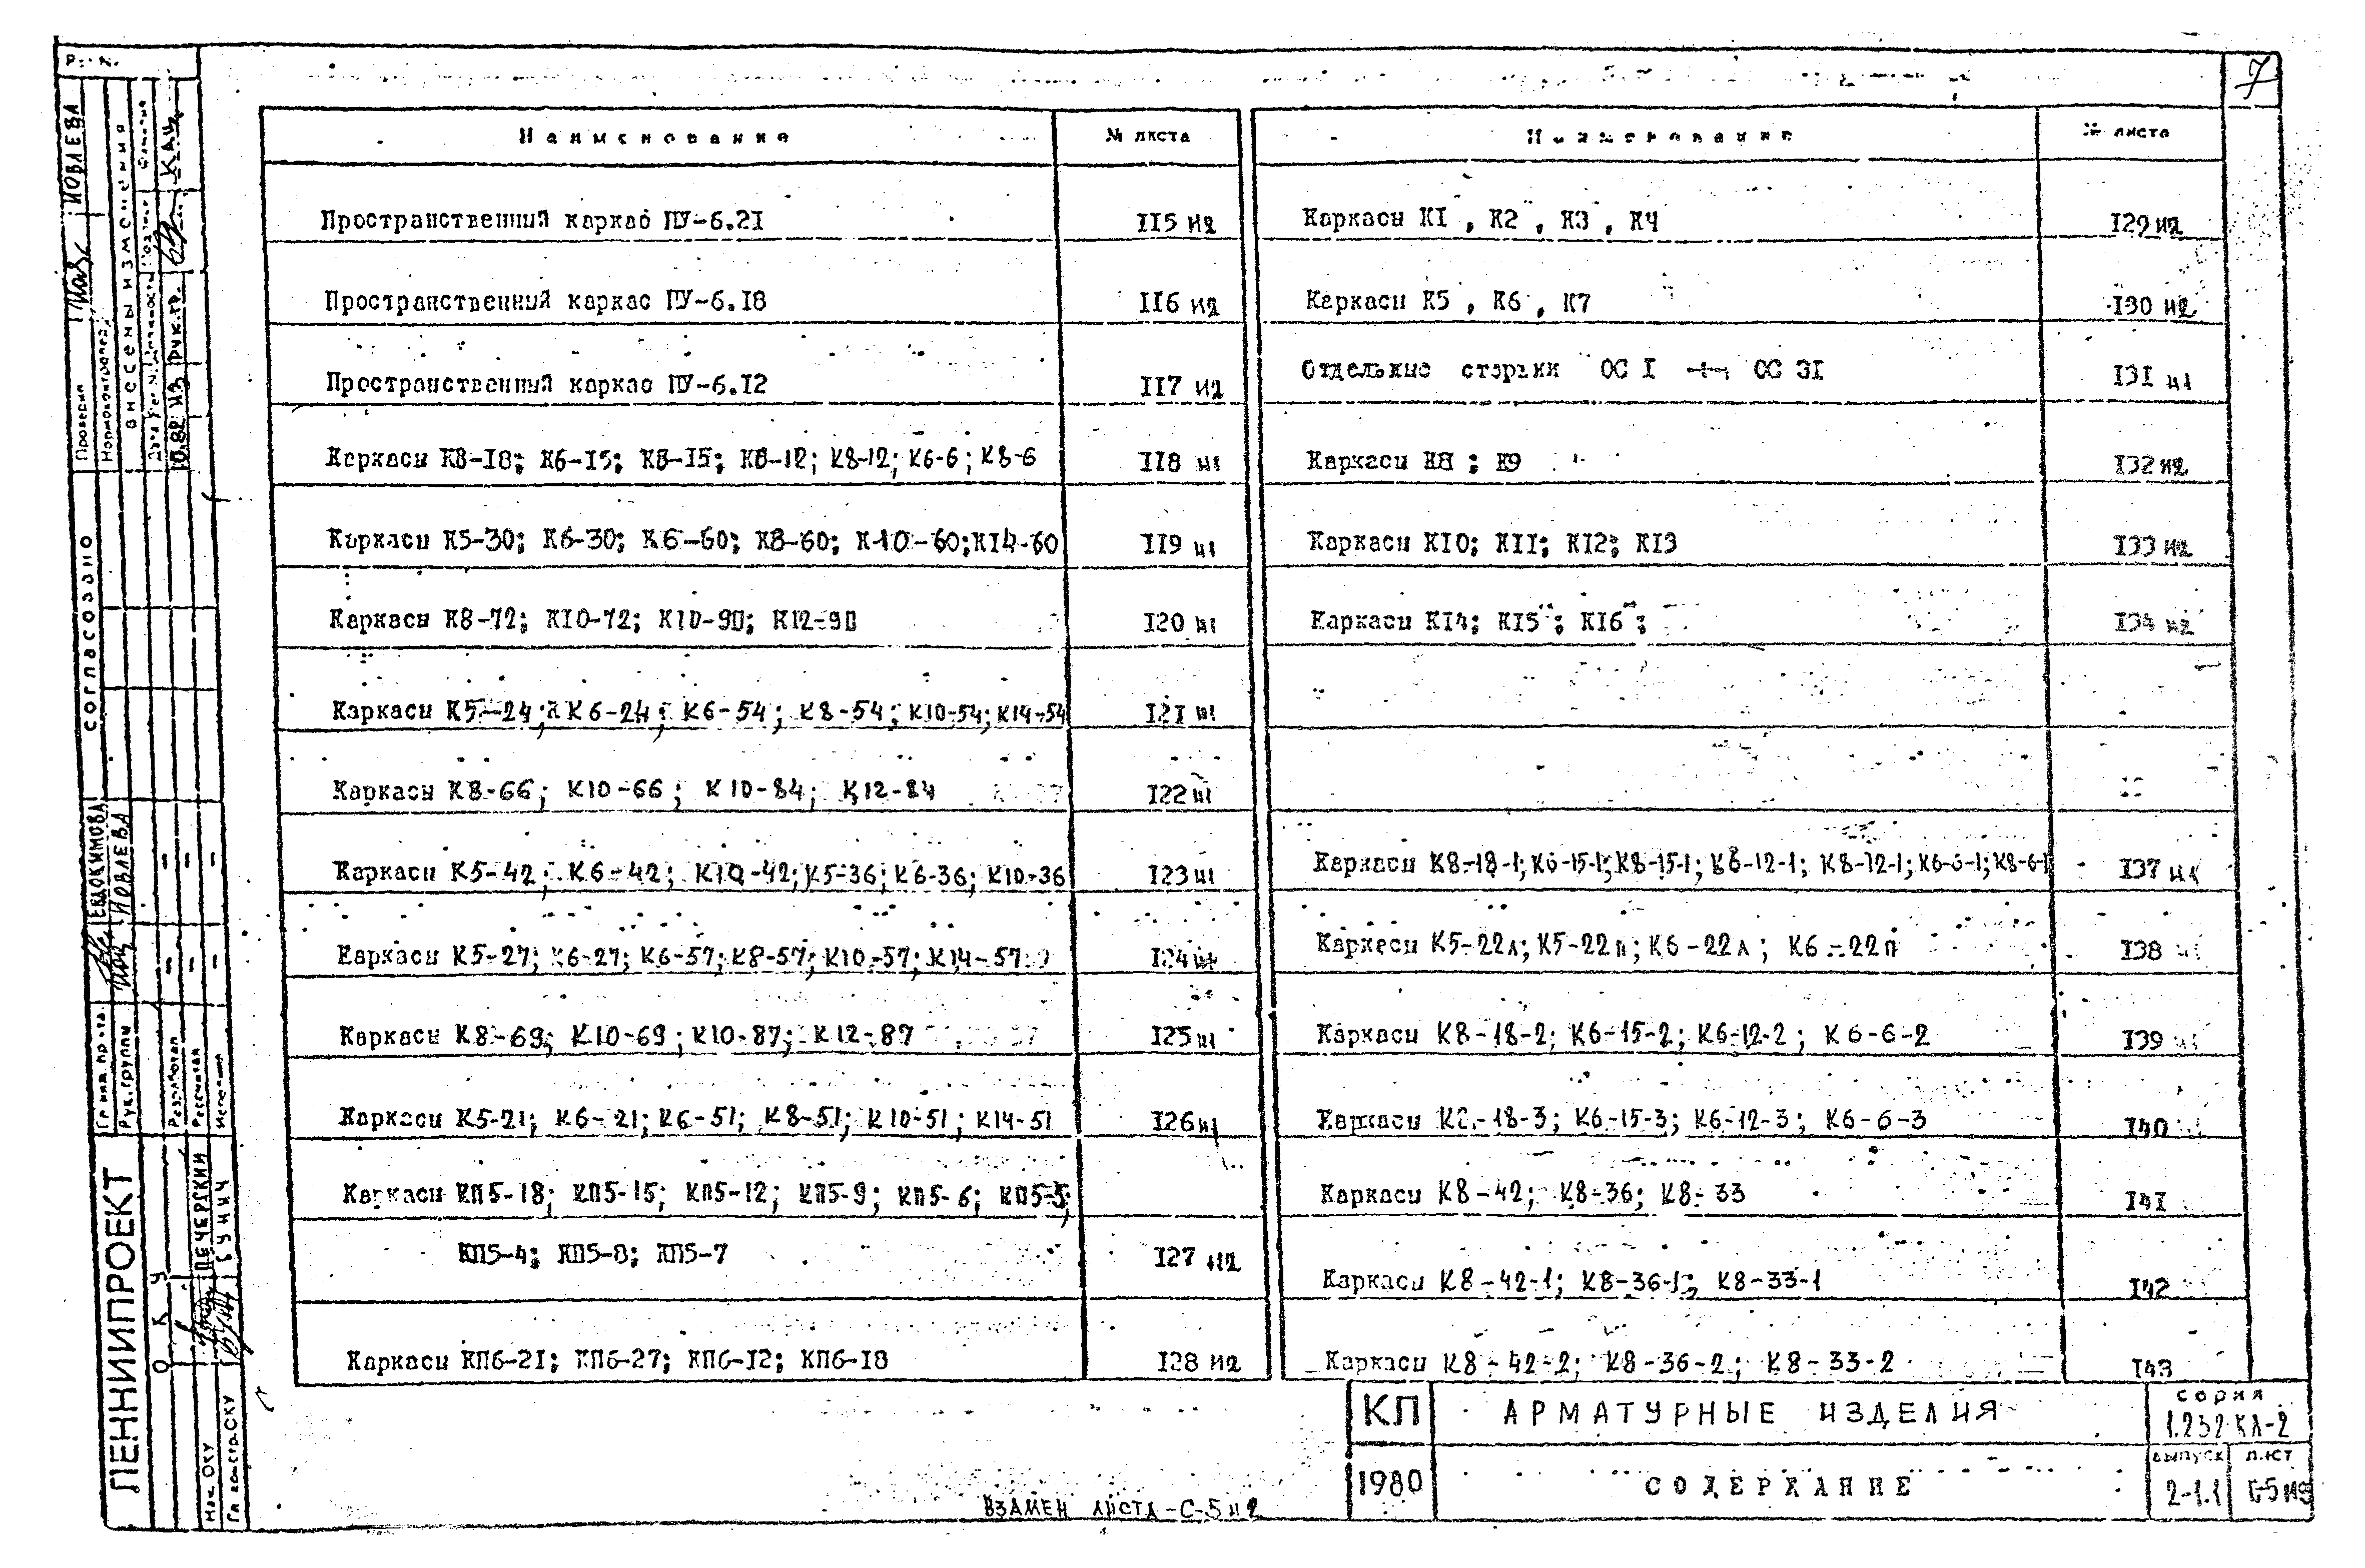 7
Наименование № листа
Пространственный каркас ПУ-6.21 115 и2
Пространственный каркас ПУ-6.18 116 и2
Пространственный каркас ПУ-6.12 117 и2
Каркасы К8-18; К6-15; К8-15; К6-12; К8-12; К6-6; К8-6 118 и1
Каркасы К5-30; К6-30; К6-60; К8-60; К10-60; К14-60 119 и1
Каркасы К8-72; К10-72; К10-90; К12-90 120 и1
Каркасы К5-24; К6-24; К6-54; К8-54; К10-54; К14-54 121 и1
Каркасы К8-66; К10-66; К10-84; К12-84 122 и1
Каркасы К5-42; К6-42; К10-42; К5-36; К6-36; К10-36 123 и1
Каркасы К5-27; К6-27; К6-57; К8-57; К10-57; К14-57 124 и1
Каркасы К8-69; К10-69; К10-87; К12-87 125 и1
Каркасы К5-21; К6-21; К6-51; К8-51; К10-51; К14-51 126 и1
Каркасы КП5-18; КП5-15; КП5-12; КП5-9; КП5-6; КП5-5;
КП5-4; КП5-8; КП5-7 127 и2
Каркасы КП6-21; КП6-27; КП6-12; КП6-18 128 и2
Наименование № листа
Каркасы К1, К2, К3, К4 129 и2
Каркасы К5, К6, К7 130 и2
Отдельные стержни ОС 1 ÷ ОС 31 131 и1
Каркасы К8; К9 132 и2
Каркасы К10; К11; К12; К13 133 и2
Каркасы К14; К15; К16; 134 и2
Каркасы К8-18-1; К6-15-1; К8-15-1; К6-12-1; К8-12-1; К6-6-1; К8-6-1 137 и1
Каркасы К5-22л; К5-22п; К6-22л; К6-22п 138
Каркасы К8-18-2; К6-15-2; К6-12-2; К6-6-2 139
Каркасы К8-18-3; К6-15-3; К6-12-3; К6-6-3 140
Каркасы К8-42; К8-36; К8-33 141
Каркасы К8-42-1; К8-36-1; К8-33-1 142
Каркасы К8-42-2; К8-36-2; К8-33-2 143
КП АРМАТУРНЫЕ ИЗДЕЛИЯ серия
1.232 КЛ-2
1980 СОДЕРЖАНИЕ выпуск лист
2-1.1 С-5и3
ВЗАМЕН ЛИСТА-С-5и2
ЛЕННИИПРОЕКТ
ОКУ
Нач. ОКУ ПЕЧЕРСКИЙ
Гл. констр. ОКУ БУНИЧ
Гл. инж. пр-та ЕВДОКИМОВА
Рук. группы ИОВЛЕВА
Разработал
Рассчитал
Исполнил
согласовано
Проверил ИОВЛЕВА
Нормоконтролер
внесены изменения
Дата Рег.№ Должность Подпись Фамилия
10.82 И3 Рук.гр. КАЦ